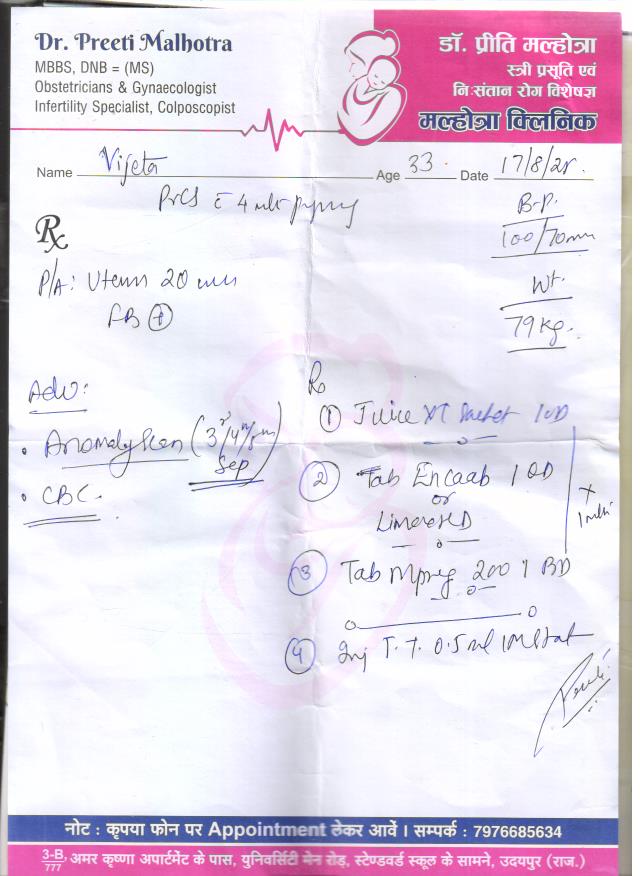 Dr. Preeti Malhotra
MBBS, DNB = (MS)
Obstetricians & Gynaecologist
Infertility Specialist, Colposcopist
डॉ. प्रीति मल्होत्रा
स्त्री प्रसूति एवं
नि:संतान रोग विशेषज्ञ
मल्होत्रा क्लिनिक
Name Vijeta Age 33 Date 17/8/25.
B.P.
100/70mm
Wt.
79 Kg.
Rx
P/A: Uterus 20
FB +
Adv:
• Anomaly Scan (3rd/4th Sep)
• CBC.
Rx
① Juice Sachet 1 OD
② Tab Encaab 1 OD
or
③ Tab Mpreg 200 1 BD
④ Inj T.T. 0.5 ml IM Stat
नोट : कृपया फोन पर Appointment लेकर आवें । सम्पर्क : 7976685634
3-B/777, अमर कृष्णा अपार्टमेंट के पास, युनिवर्सिटी मेन रोड, स्टेण्डवर्ड स्कूल के सामने, उदयपुर (राज.)